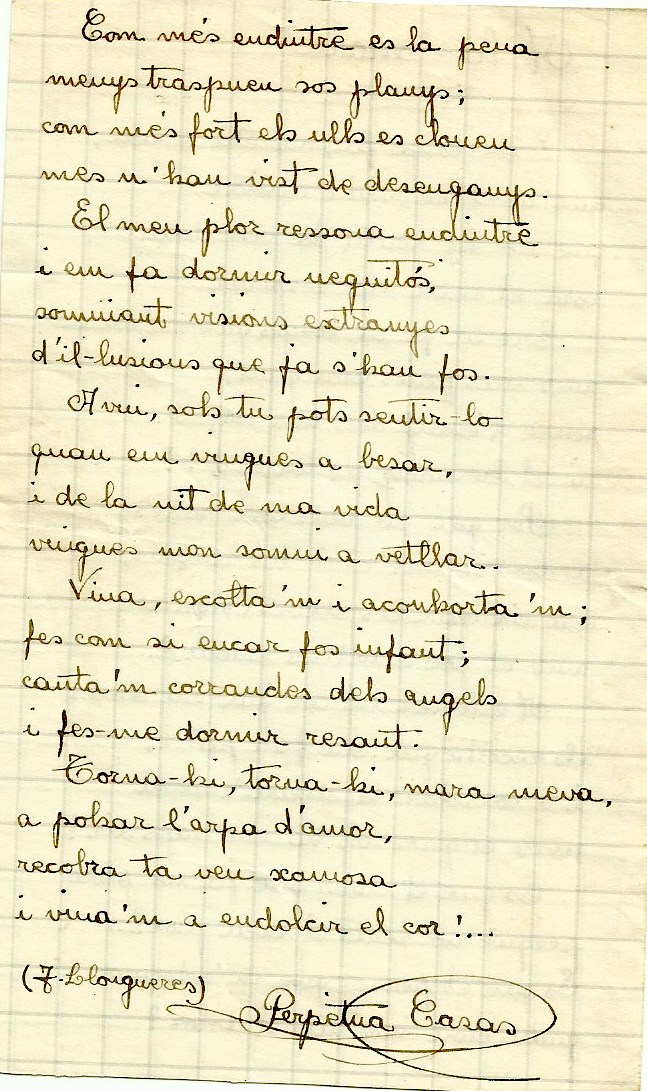 Com més endintre es la pena
menys traspuen sos planys;
com més fort els ulls es clouen
mes n'han vist de desenganys.
El meu plor ressona endintre
i em fa dormir neguitós,
somniant visions extranyes
d'il-lusions que ja s'han fos.
Avui, sols tu pots sentir-lo
quan em vingues a besar,
i de la nit de ma vida
vingues mon somni a vetllar..
Vina, escolta'm i aconhorta'm;
fes com si encar fos infant;
canta'm corrandes dels angels
i fes-me dormir resant.
Torna-hi, torna-hi, mara meva,
a polsar l'arpa d'amor,
recobra ta veu xamosa
i vina'm a endolcir el cor!...
(J. Llongueres)
Perpètua Casas